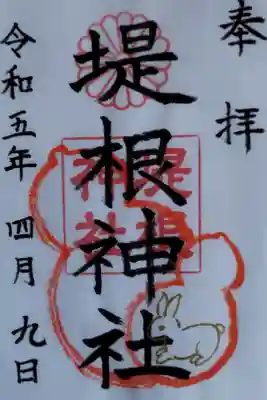 奉拝
堤根神社
令和五年 四月 九日
堤根神社